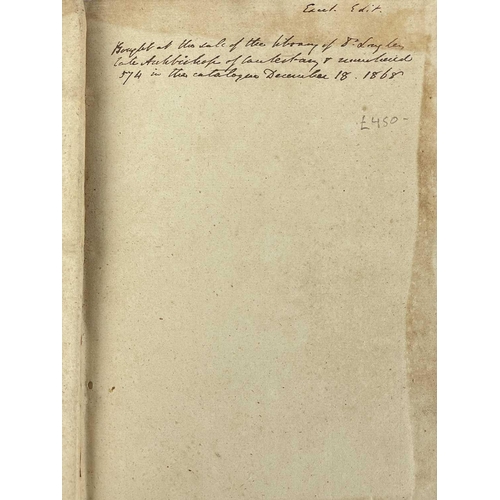 Excel. Edit.
Bought at the sale of the library of Dr. Longley
late Archbishop of Canterbury & numbered
574 in the catalogue December 18. 1868
£450-